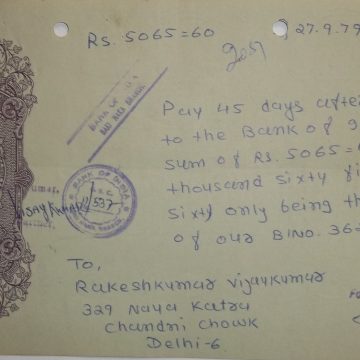 Rs. 5065=60
27.9.79
BANK OF
Pay 45 days after
to the Bank of
sum of Rs. 5065=
thousand sixty
sixty only being th
of our B/NO. 36
BANK OF INDIA
537
To,
Rakeshkumar Vijaykumar
329 Naya Katra
Chandni Chowk
Delhi-6